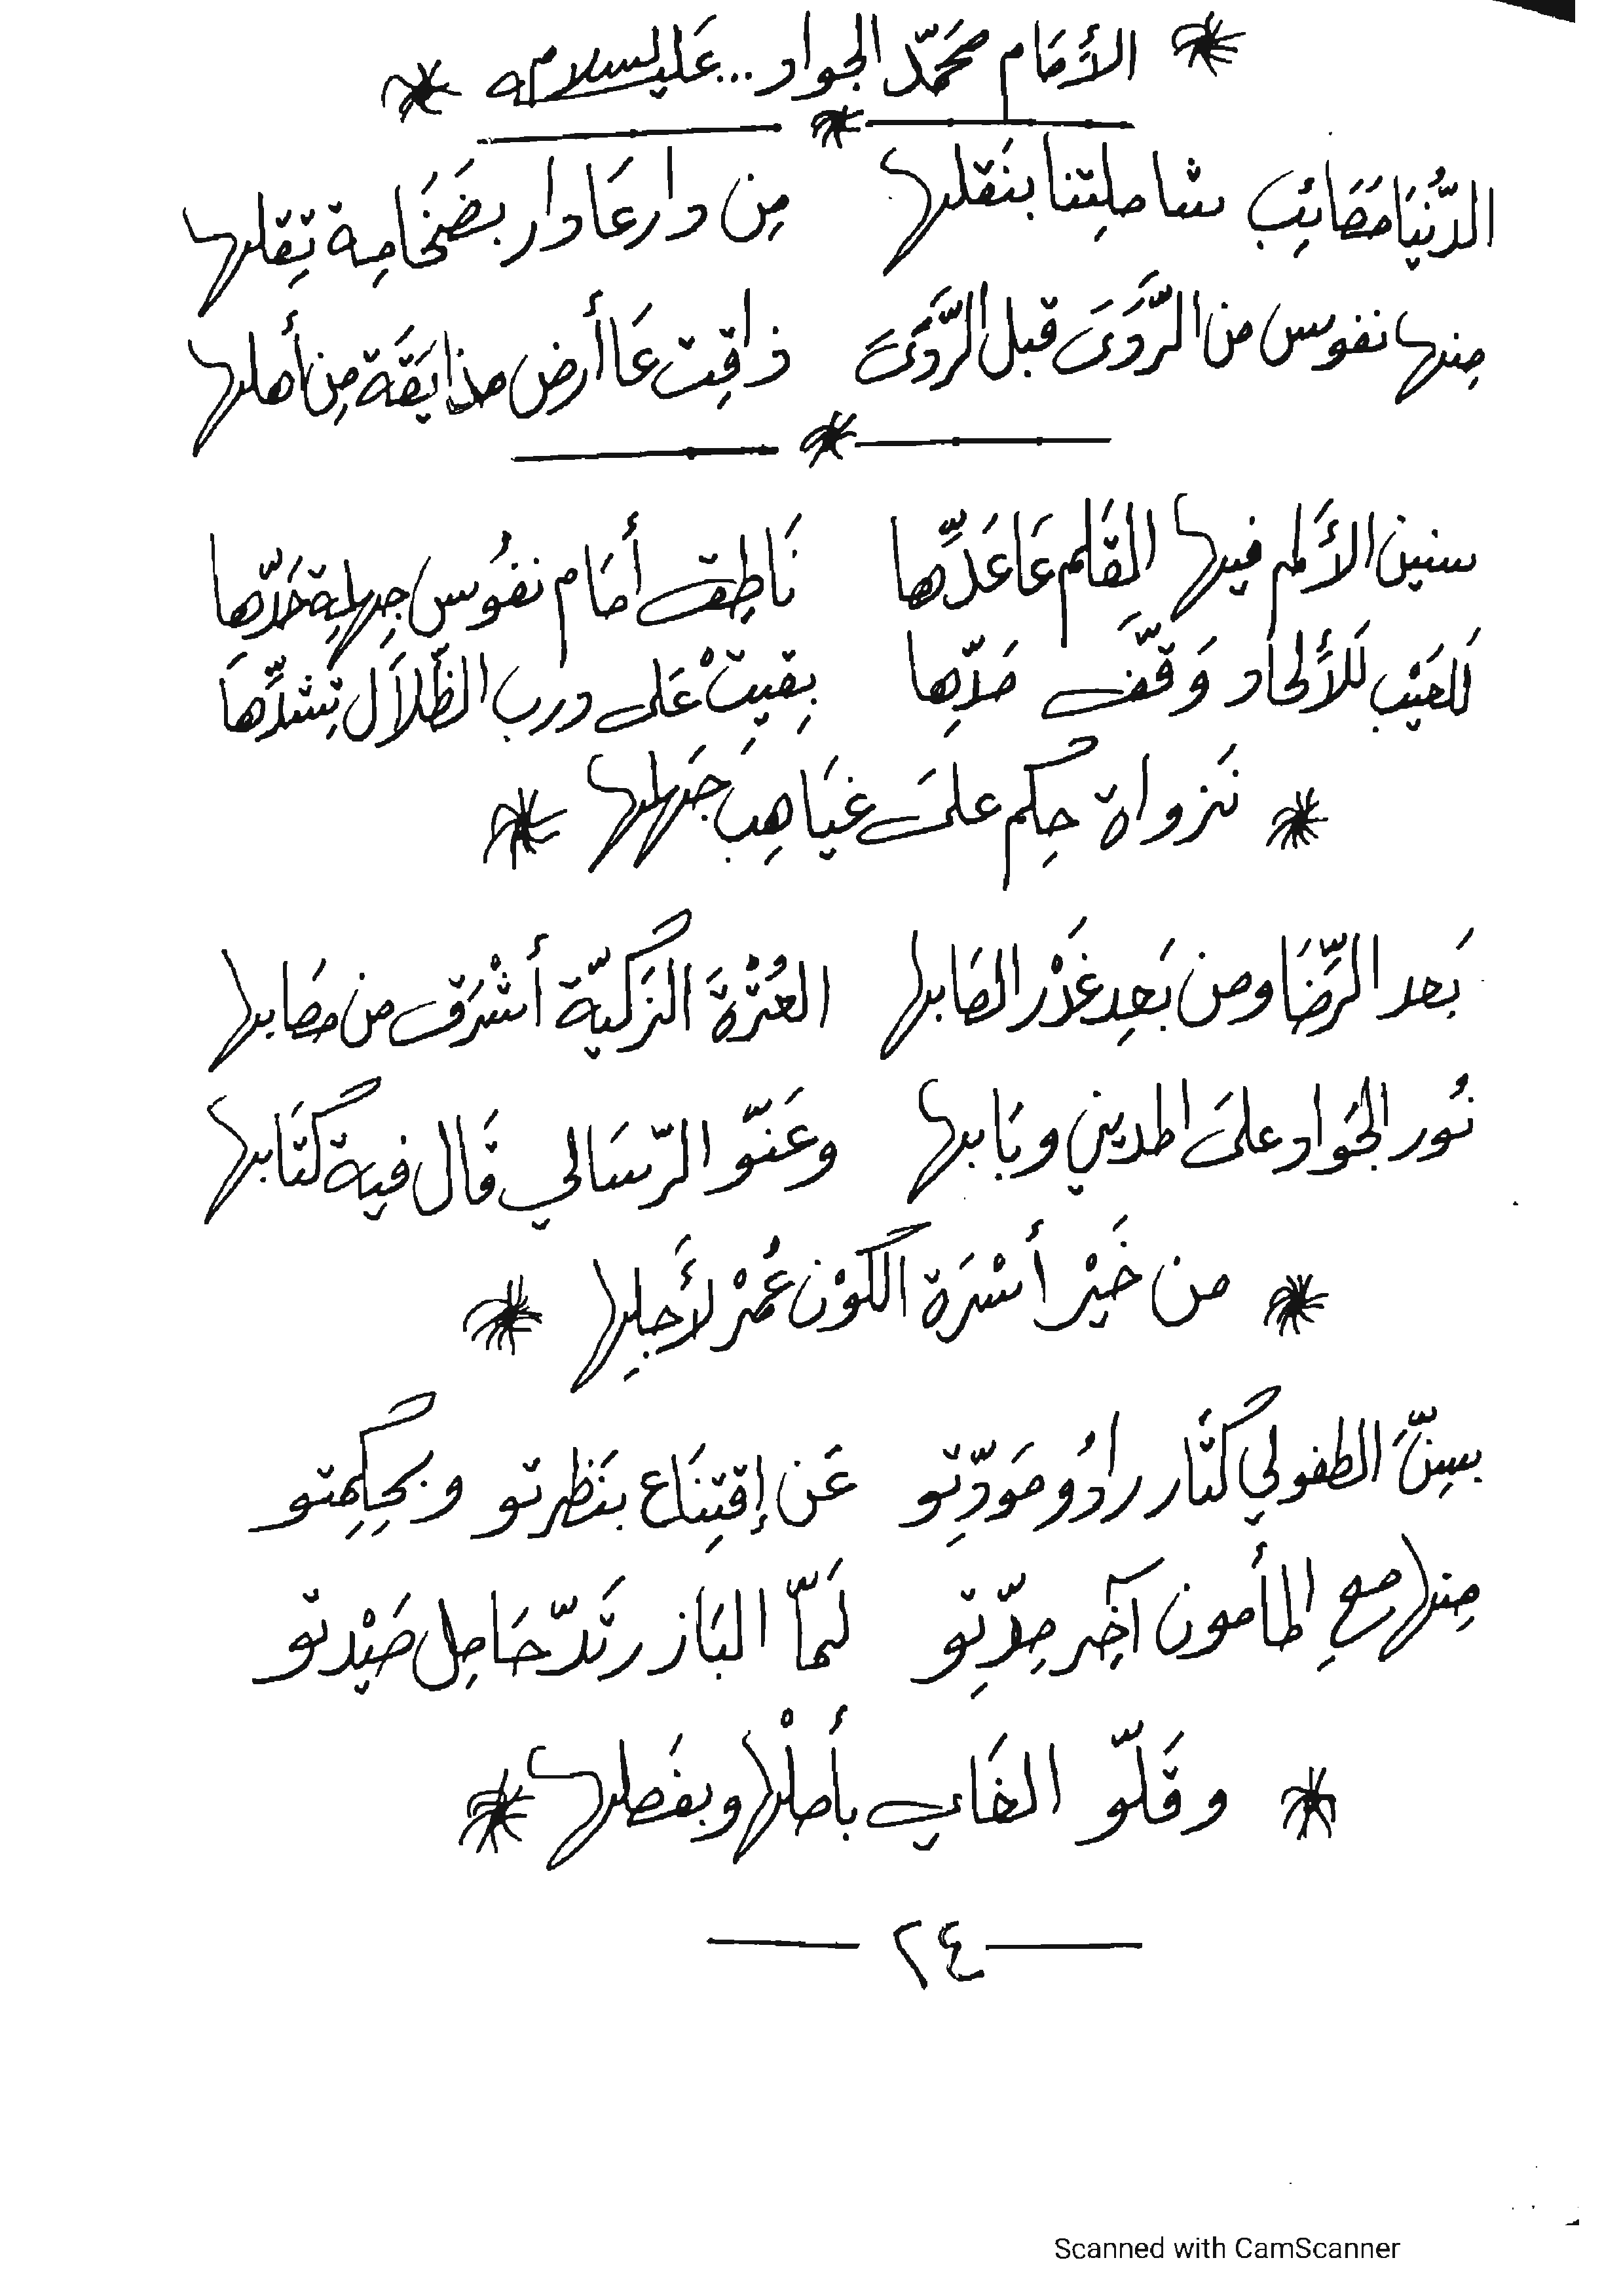 الأمَام محَمّد الجواد ... عَليه السلام
الدُّنيَا مَصَائِب شاملِتنا بنَقلها مِن دار عَادار بضَخَامِة تِقلها
مِنها نفوس من الرَّدَىَ قبل الرَّدَىَ ذاقِت عَاأرض مذايَقَة مِن أهلها
سنين الأَلم فيها القَلم عَاعَدِّها نَاطِق أمَام نفوُس جِهلِة حَدّها
للعَيْب لَلأَلحاد وَقَّف مَدِّها بِقيتْ على درب الظَّلاَل تِشدِّهَا
نَزواة حِكم علىَ غيَاهِبَ جَهلها
بَعد الرِّضَا ومن بَعِد غَدْر الصَابها العُتْرَة الزكيّة أشْرَقت من مصَابها
نُور الجَواد علىَ المديني وبَابها وعَنّو الرّسَالي قَال فيه كتَابها
من خَيْر أسْرَة الكوْن عُمْر لأَجلِها
بسِنَّ الطفولي كتَار رادُو مَودِّتو عَن إقتِنَاع بنَظرتو وبحِكِمتو
مِنها معِ المأمون آخِر مِدِّتو لَمّا البَاز رتَدّ حَامِل صَيْدتو
وقَلّو الخَافي بأَصلْها وبفَصلها
٢٤
Scanned with CamScanner